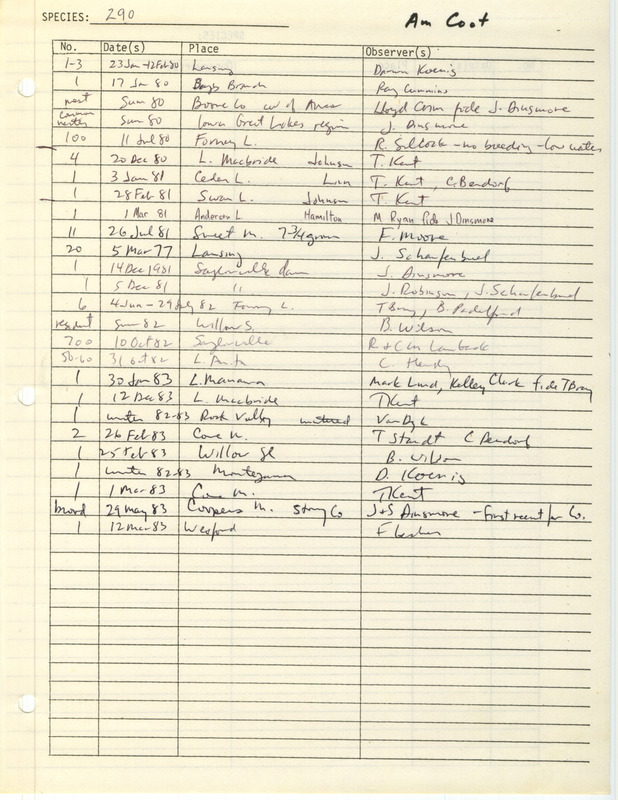 SPECIES: 290
Am Coot
No. Date(s) Place Observer(s)
1-3 23 Jan-12 Feb 80 Lansing Darwin Koenig
1 17 Jan 80 Bays Branch Ray Cummins
nest Sum 80 Boone Co w of Ames Lloyd Crim fide J. Dinsmore
common nester Sum 80 Iowa Great Lakes region J. Dinsmore
100 11 Jul 80 Forney L. R. Silcock - no breeding - low water
4 20 Dec 80 L. Macbride Johnson T. Kent
1 3 Jan 81 Cedar L. Linn T. Kent, C. Bendorf
1 28 Feb 81 Swan L. Johnson T. Kent
1 1 Mar 81 Anderson L Hamilton M Ryan fide J Dinsmore
11 26 Jul 81 Sweet M. 7-3/4 grown F. Moore
20 5 Mar 77 Lansing J. Schaufenbuel
1 14 Dec 1981 Saylorville dam J. Dinsmore
1 5 Dec 81 " J. Robinson, J. Schaufenbuel
6 4 Jun - 29 July 82 Forney L. T Bray, B. Padelford
resident Sum 82 Willow S. B. Wilson
700 10 Oct 82 Saylorville R + C M
50-60 31 Oct 82 L.
1 30 Jan 83 L. Manawa Mark Lund, Kelley Clark fide T Bray
1 12 Dec 83 L. Macbride T Kent
1 winter 82-83 Rock Valley wintered Van Dyk
2 26 Feb 83 Cone M. T Staudt C Bendorf
1 25 Feb 83 Willow Sl B. Wilson
1 winter 82-83 Montezuma D. Koenig
1 1 Mar 83 Cone M. T Kent
brood 29 May 83 Coopers M. Story Co J + S Dinsmore - First recent for Co.
1 12 Mar 83 Wexford F Lesher